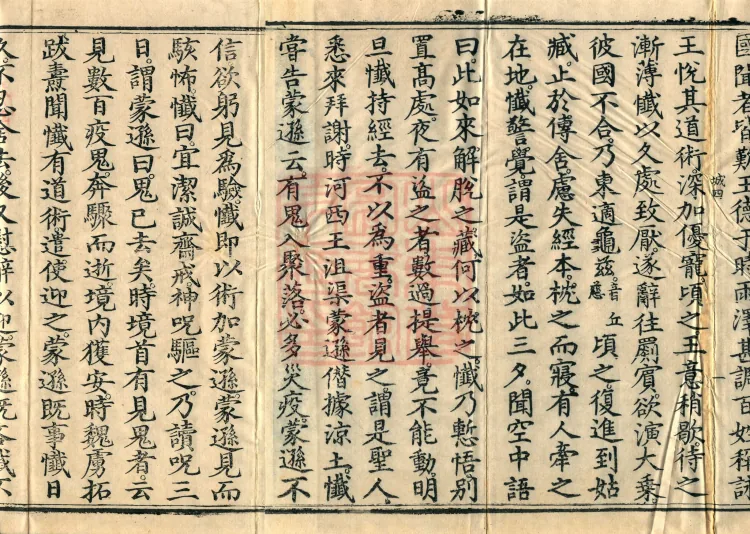 國聞者皆難王德于時雨澤甚調百姓稱詠
王悅其道術深加優寵頃之王意稍歇待之
漸薄懺以久處致厭遂辭往罽賓欲演大乘
彼國不合乃東適龜茲音丘慈頃之復進到姑
臧止於傳舍慮失經本枕之而寢有人牽之
在地懺警覺謂是盜者如此三夕聞空中語
曰此如來解脫之藏何以枕之懺乃慙悟別
置高處夜有盜之者數過提舉竟不能動明
旦懺持經去不以為重盜者見之謂是聖人
悉來拜謝時河西王沮渠蒙遜僭據涼土懺
甞告蒙遜云有鬼入聚落必多災疫蒙遜不
信欲躬見為驗懺即以術加蒙遜蒙遜見而
駭怖懺曰宜潔誠齋戒神呪驅之乃讀呪三
日謂蒙遜曰鬼已去矣時境首有見鬼者云
見數百疫鬼奔驟而逝境內獲安時魏虜拓
跋燾聞懺有道術遣使迎之蒙遜既事懺日
久不忍